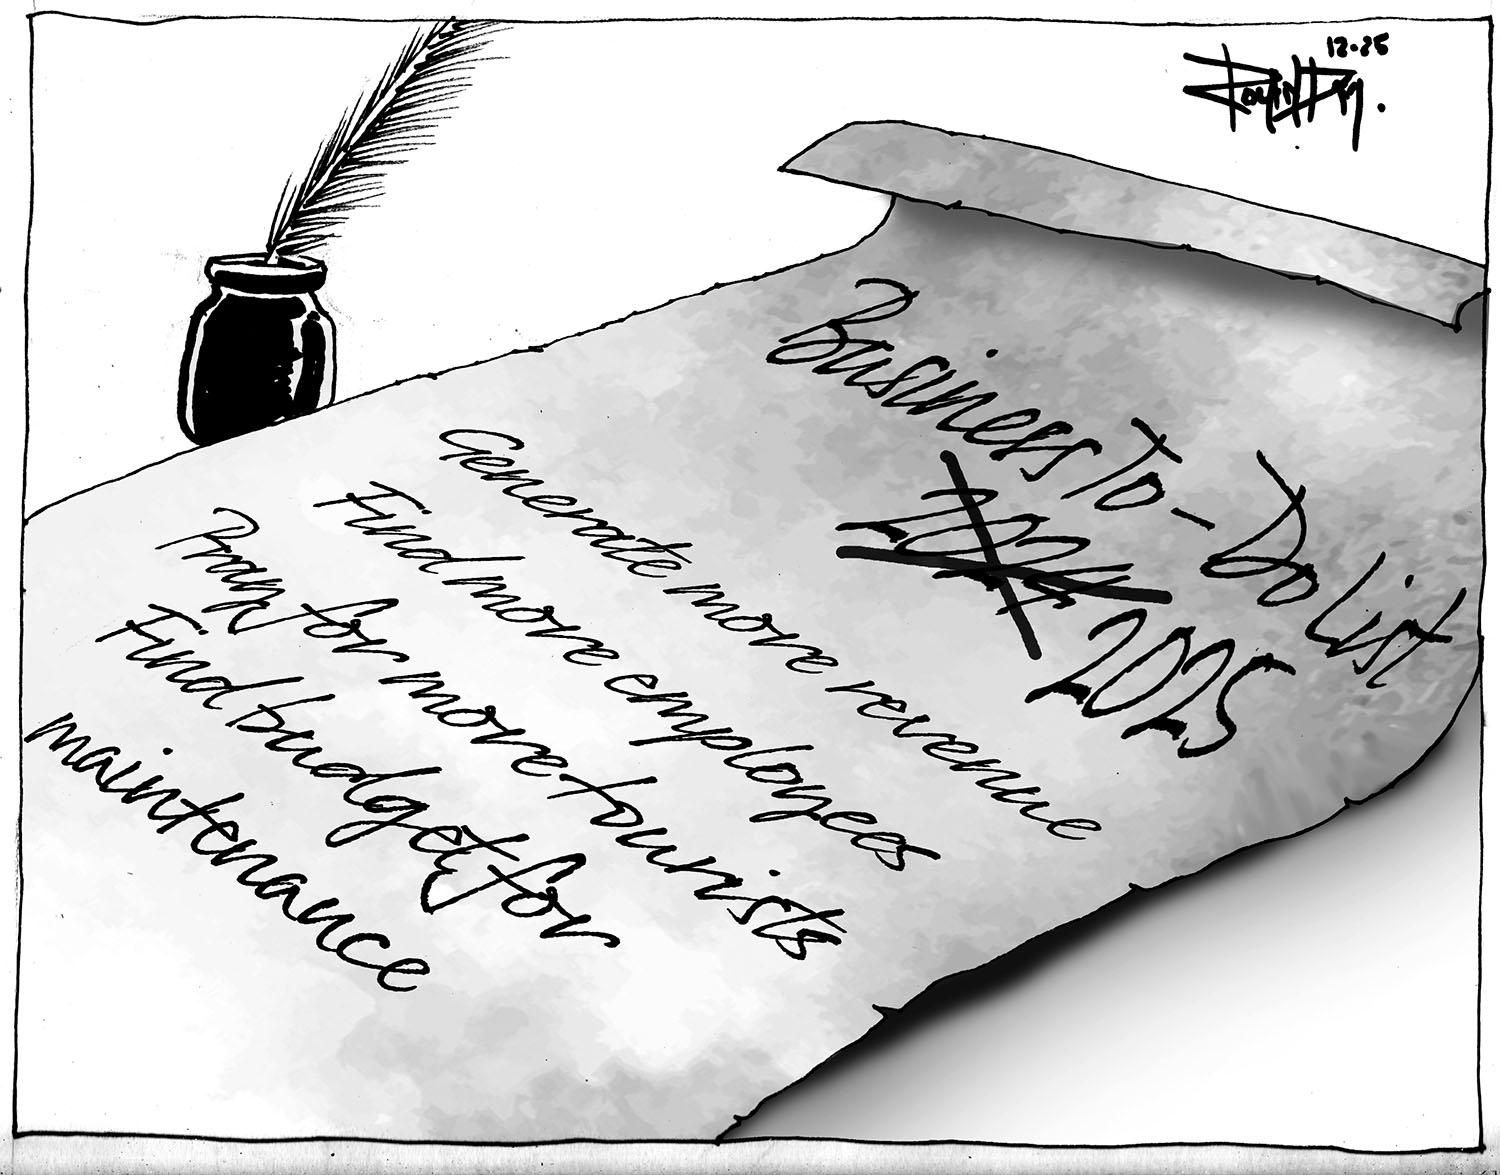 12-25
Business To-Do List
2024 2025
Generate more revenue
Find more employees
Pray for more tourists
Find budget for
maintenance